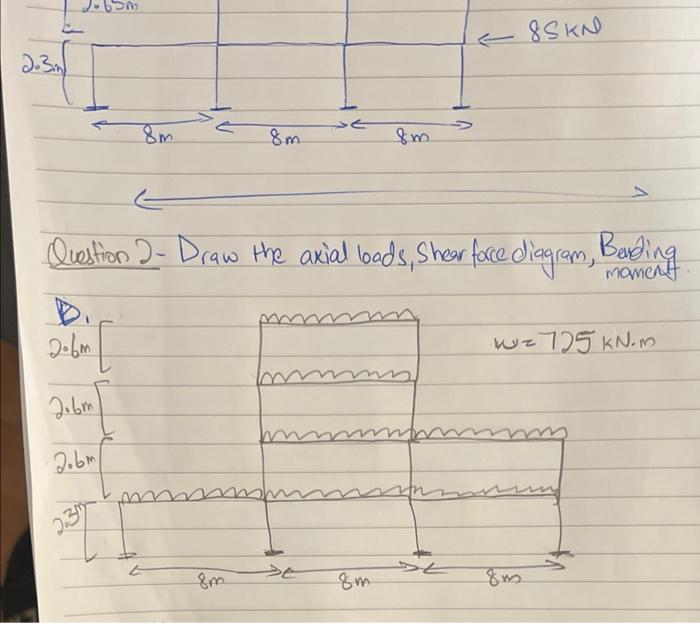 2.65m
← 85KN
2.3m
8m 8m 8m
Question 2- Draw the axial loads, Shear force diagram, Bending moment.
D.
2.6m
w = 725 KN.m
2.6m
2.6m
2.3m
8m 8m 8m